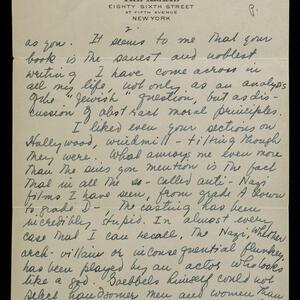 EIGHTY SIXTH STREET
AT FIFTH AVENUE
NEW YORK
2.
as you. It seems to me that your
book is the sanest and noblest
writing I have come across in
all my life, not only as an analysis
of the "Jewish" question, but as dis-
cussion of abstract moral principles.
I liked even your sections on
Hollywood, windmill-tilting though
they were. What annoys me even more
than the sins you mention is the fact
that in all the so-called anti-Nazi
films I have seen, from grade A down
to grade D-, the casting has been
incredibly stupid. In almost every
case that I can recall, the Nazi, whether
arch-villain or inconsequential flunkey,
has been played by an actor who looks
like a God. Goebbels himself could not
select handsomer men and women than